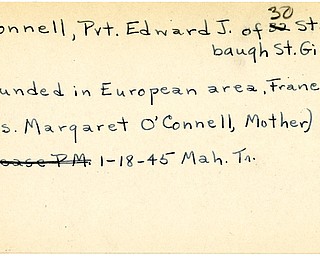 onnell, Pvt. Edward J. of 30 St
baugh St. Gi
unded in European area, Franc
s. Margaret O'Connell, Mother)
ease P.M. 1-18-45 Mah. Tr.